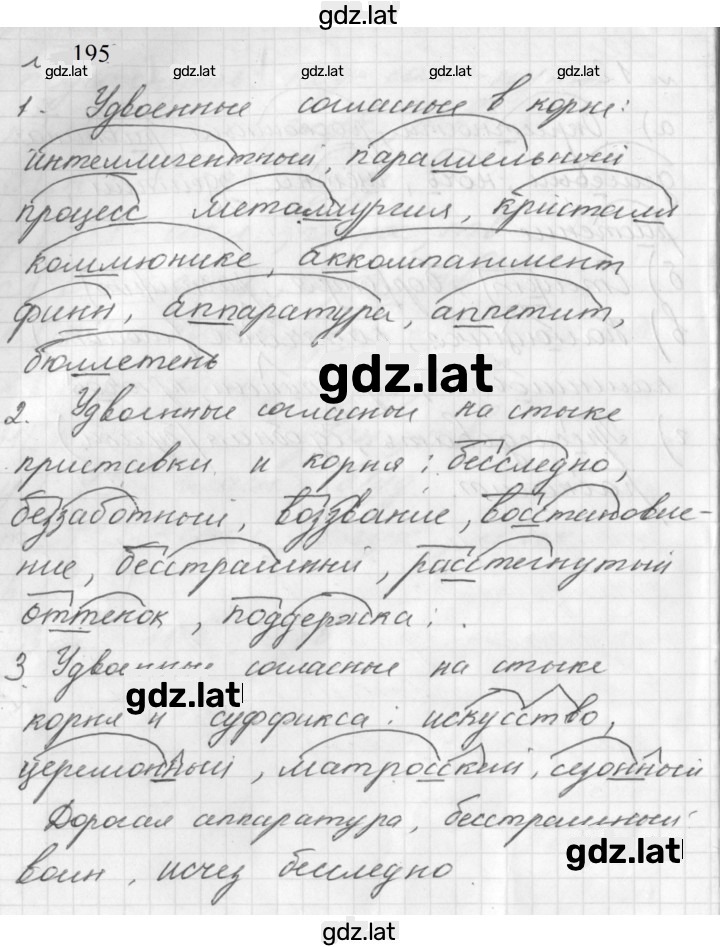 gdz.lat
195
gdz.lat gdz.lat gdz.lat gdz.lat gdz.lat
1. Удвоенные согласные в корне:
интеллигентный, параллельный
процесс металлургия, кристалл
коммюнике, аккомпанимент
финн, аппаратура, аппетит,
бюллетень
gdz.lat
2. Удвоенные согласные на стыке
приставки и корня: бесследно,
беззаботный, воззвание, восстановле-
ние, бесстрашный, расстегнутый
оттенок, поддержка:
3 Удвоенные согласные на стыке
gdz.lat
корня и суффикса: искусство,
церемонный, матросский, сезонный
Дорогая аппаратура, бесстрашный
gdz.lat
воин, исчез бесследно
gdz.lat